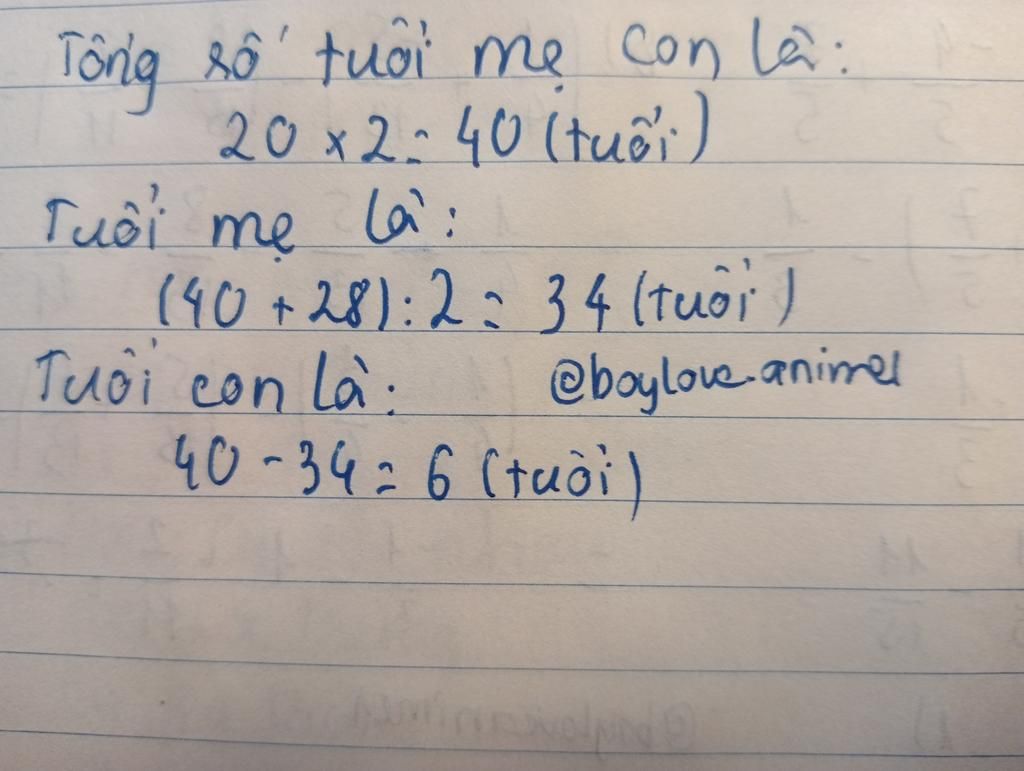 Tổng số tuổi mẹ con là:
20 x 2 = 40 (tuổi)
Tuổi mẹ là:
(40 + 28) : 2 = 34 (tuổi)
Tuổi con là: @boylove.animel
40 - 34 = 6 (tuổi)